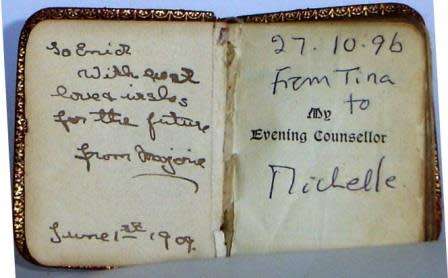 To Enid
With great
love & wishes
for the future
from Marjorie
June 1st 1909.
27.10.96
From Tina
to
My
Evening Counsellor
Michelle.